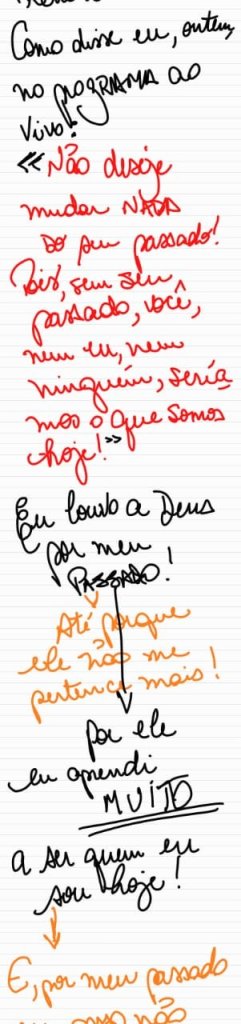 Como disse eu, ontem,
no PROGRAMA ao
vivo!
« Não deseje
mudar NADA
do seu passado!
Pois, sem seu
passado, você,
nem eu, nem
ninguém, sería
mos o que somos
hoje! »
Eu louvo a Deus
por meu
PASSADO!
Até porque
ele não me
pertence mais!
Por ele
eu aprendi
MUITO
a ser quem eu
sou hoje!
E, por meu passado
não